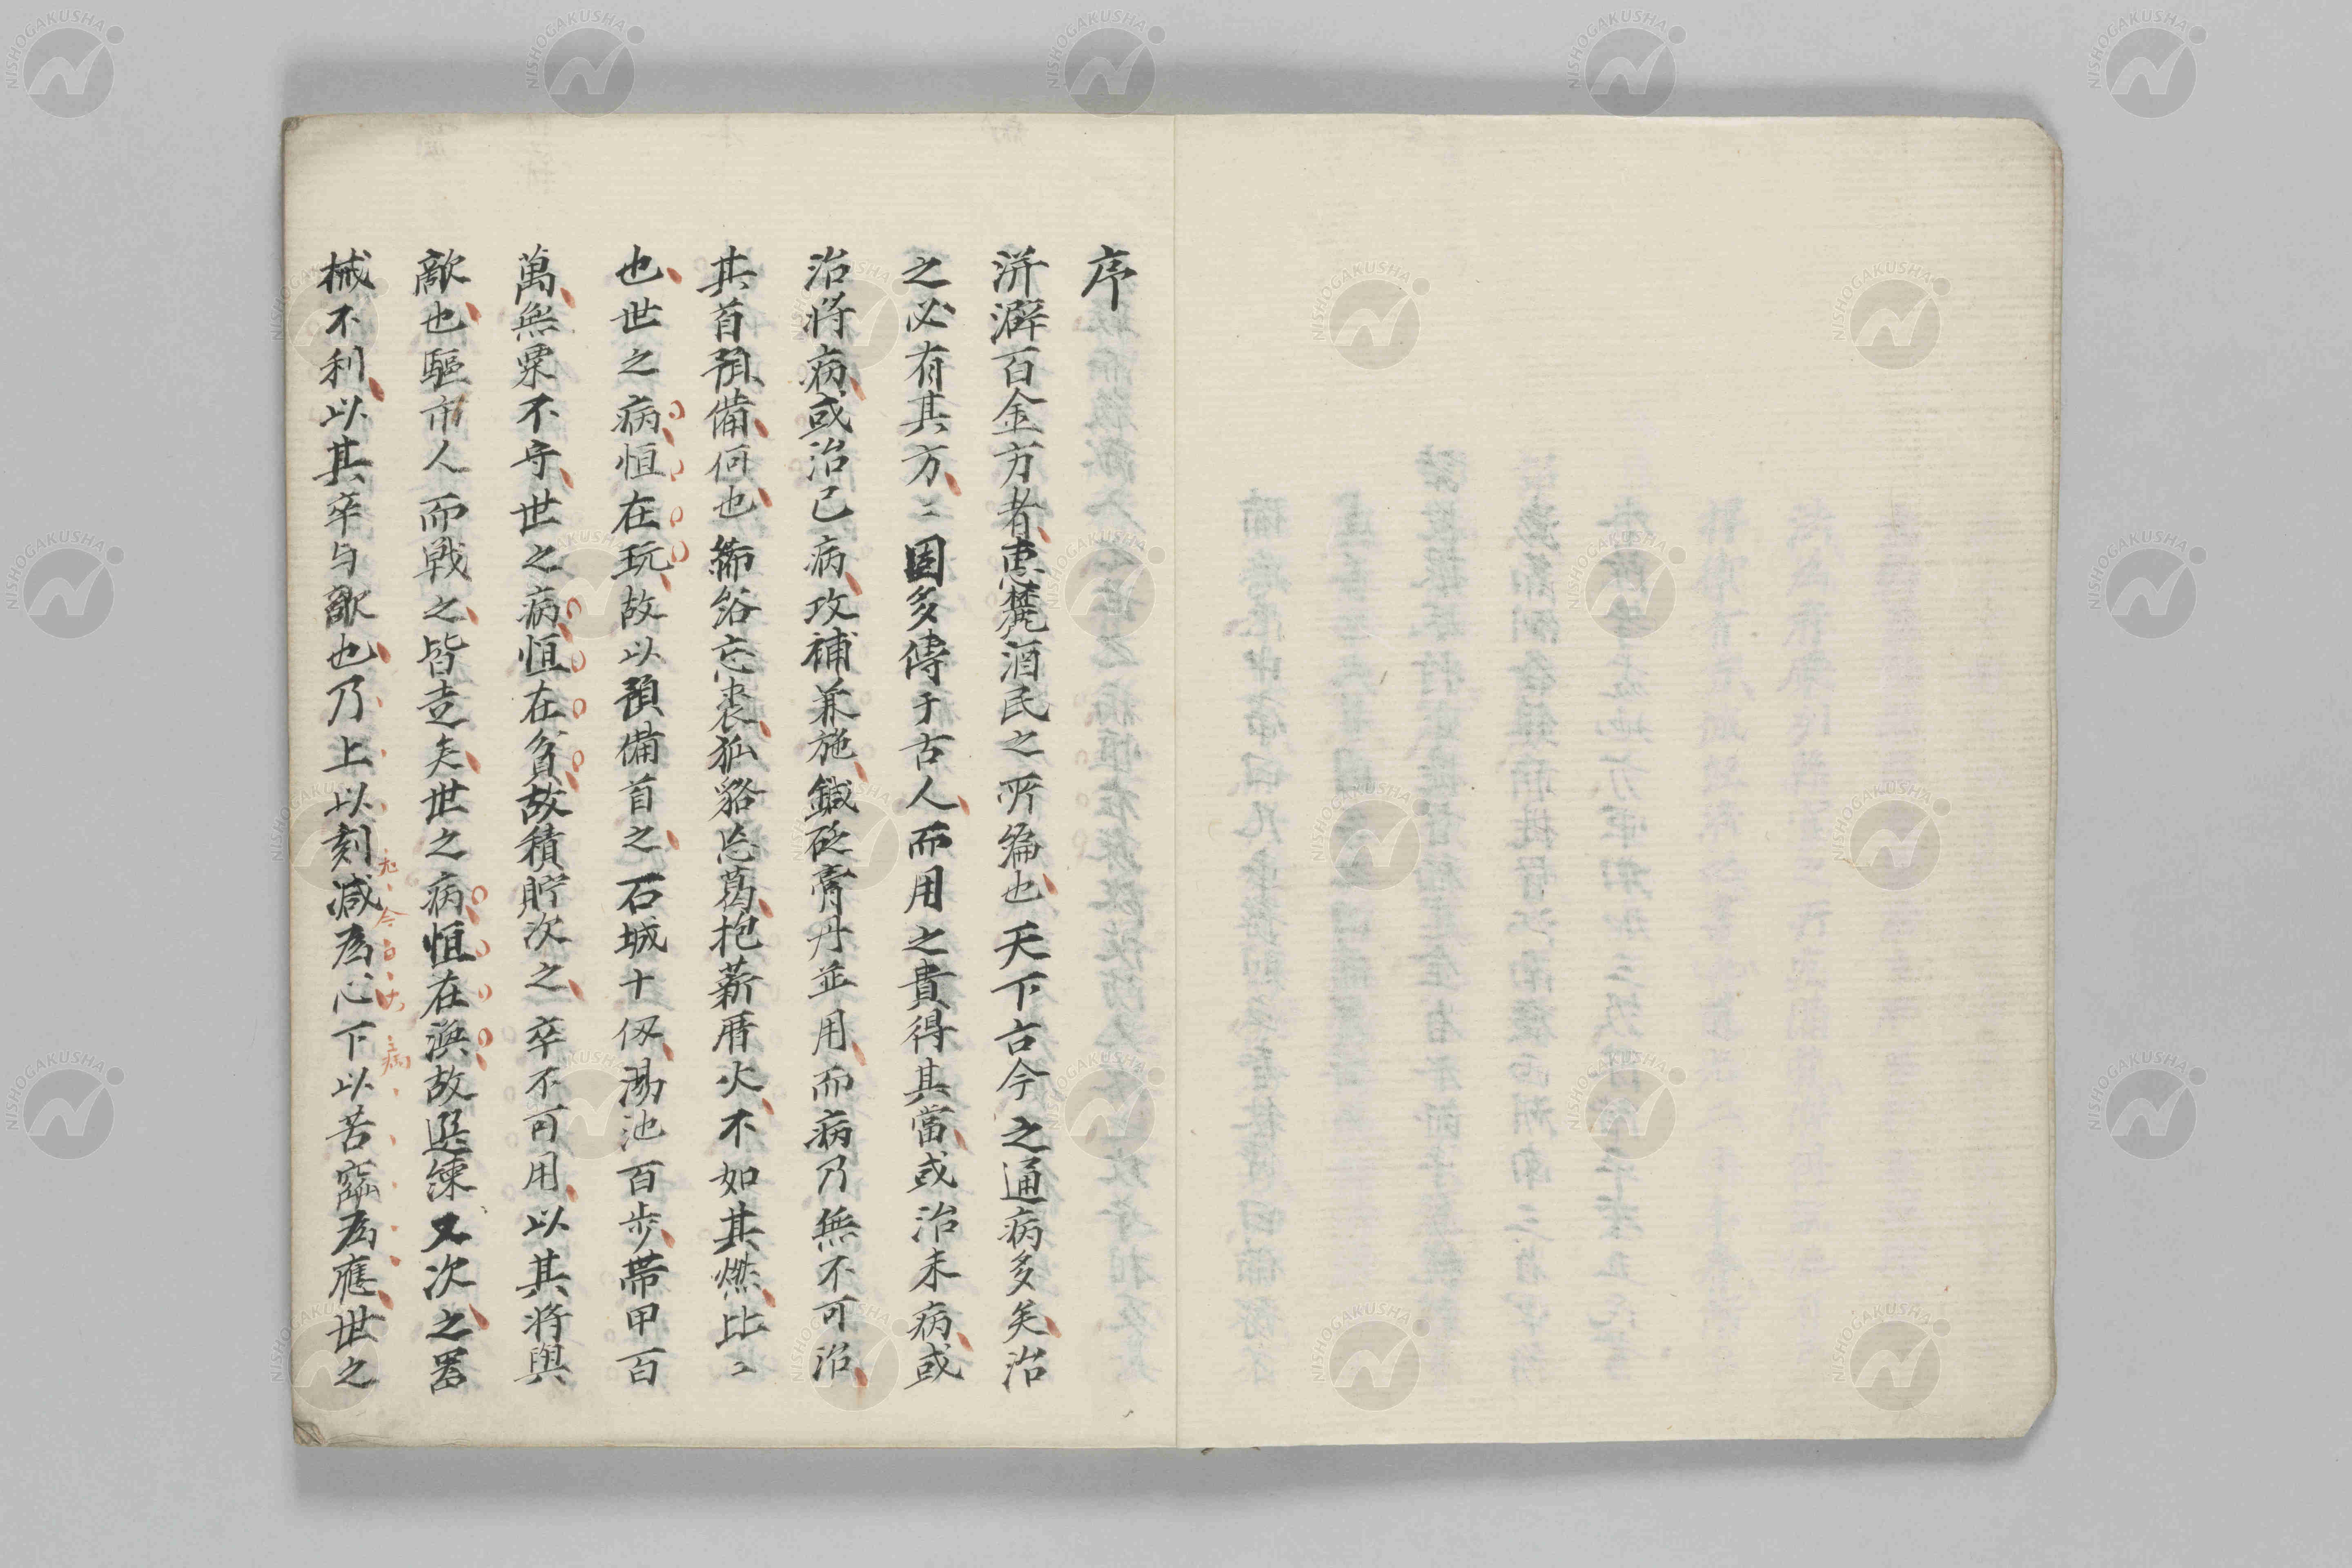 序
洴澼百金方者惠麓酒民之所編也天下古今之通病多矣治
之必有其方〻固多傳于古人而用之貴得其當或治未病或
治將病或治已病攻補兼施鍼砭膏丹並用而病乃無不可治
其首預備何也絺綌忘裘狐貉忘葛抱薪厝火不如其燃比〻
也世之病恒在玩故以預備首之石城十仞湯池百步帶甲百
萬無粟不守世之病恒在貧故積貯次之卒不可用以其將與
敵也驅市人而戰之皆走矣世之病恒在渙故選練又次之器
械不利以其卒与敵也乃上以刻減為心下以苦窳為應世之
NISHOGAKUSHA